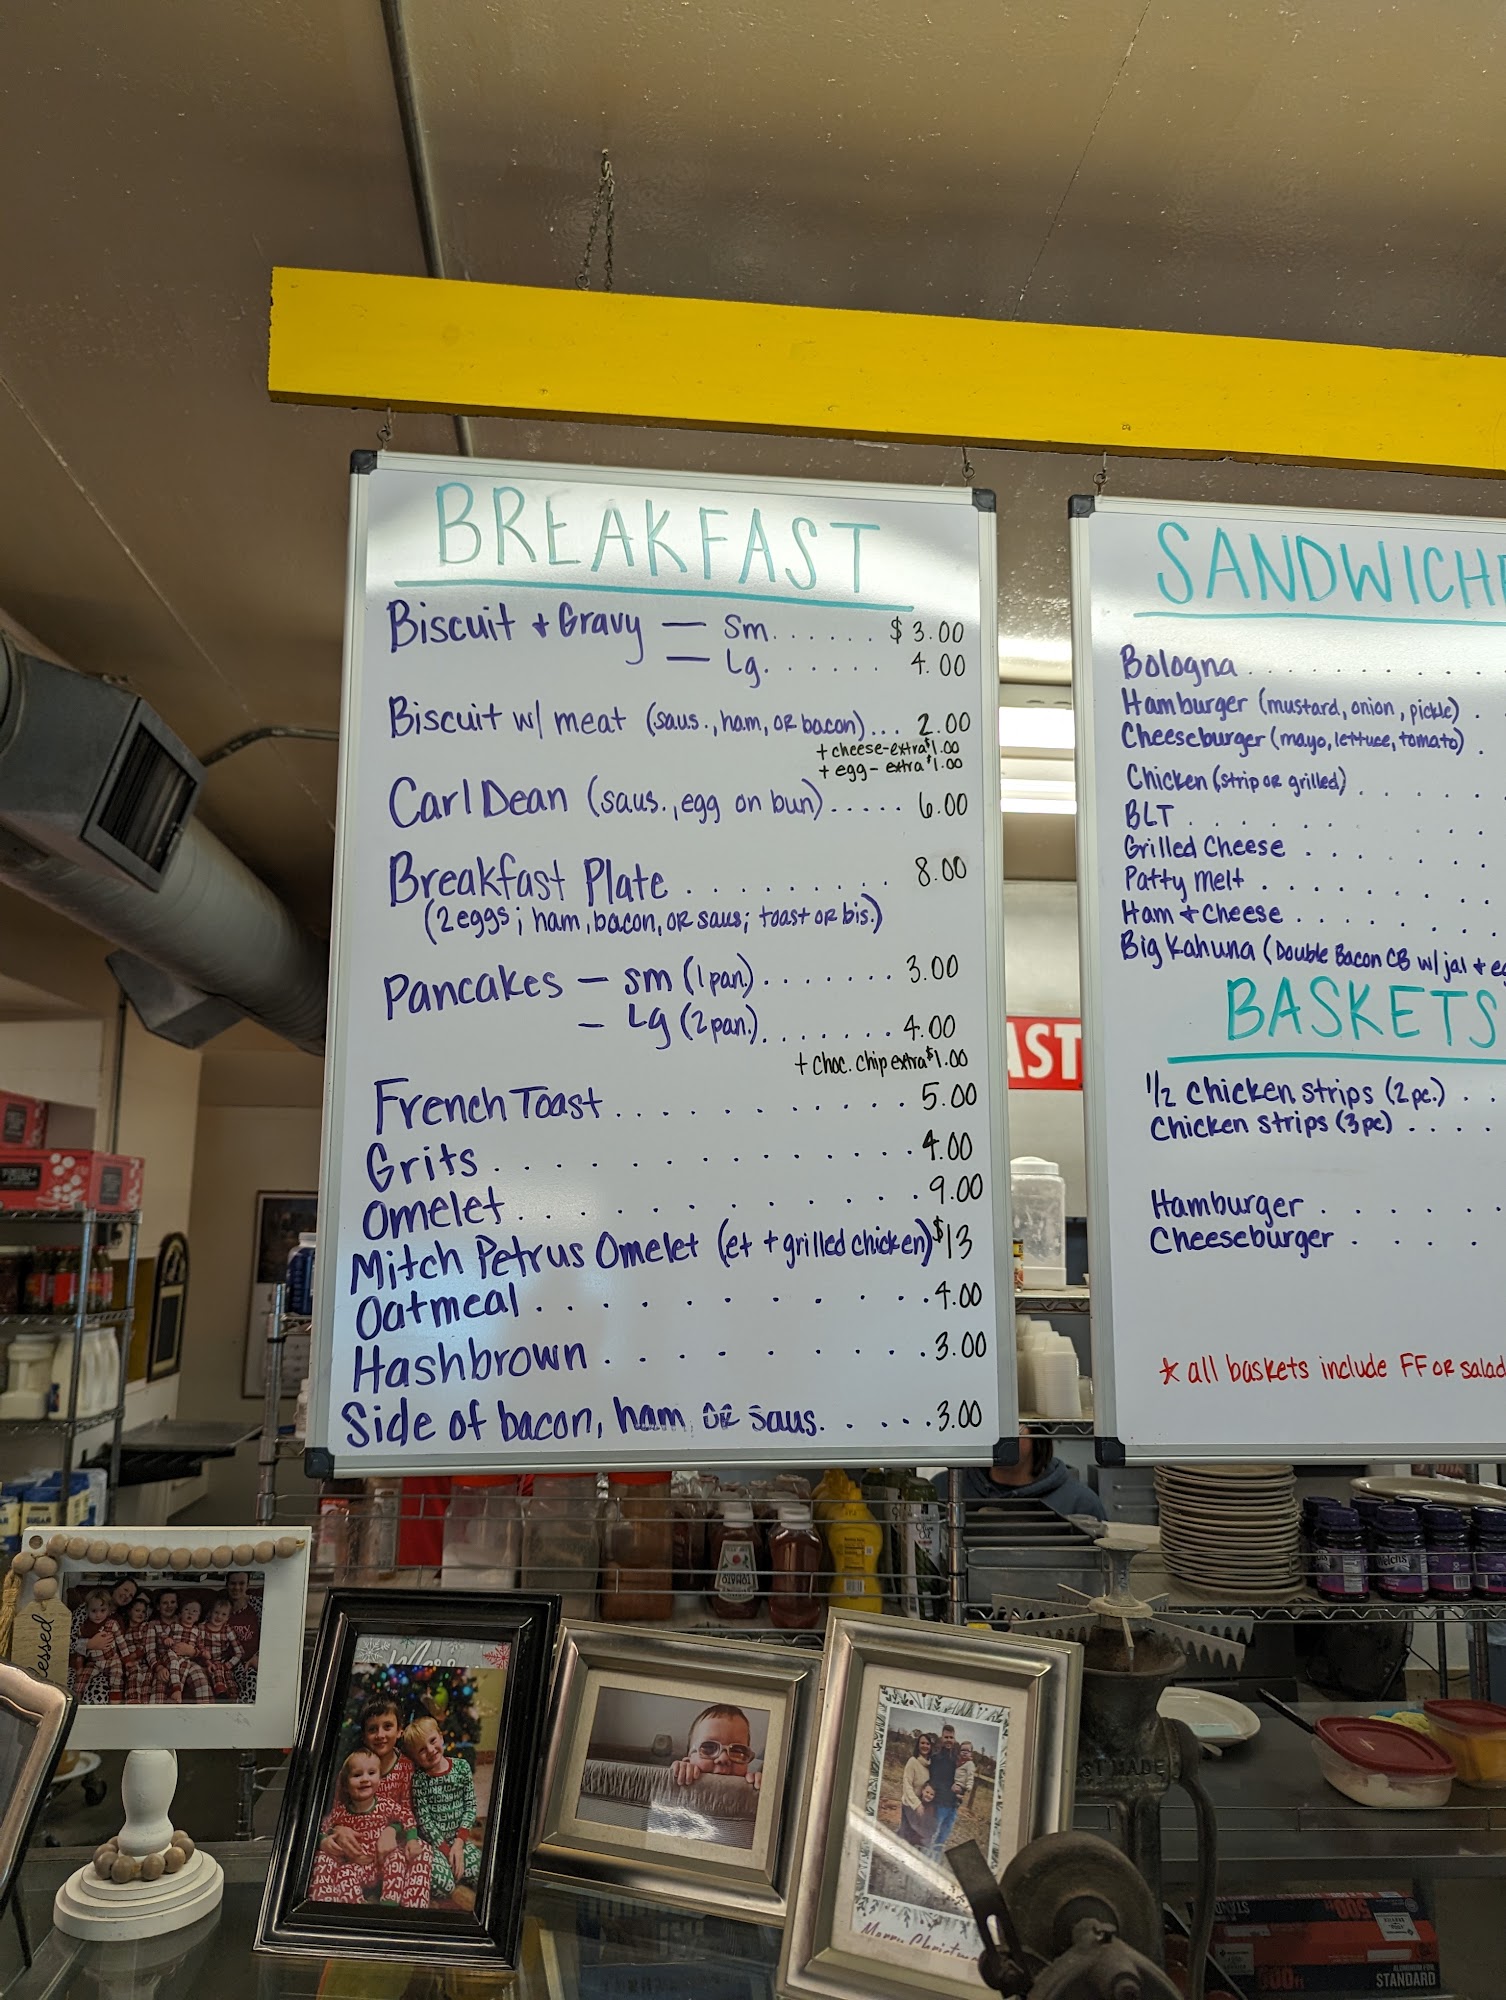 BREAKFAST
Biscuit + Gravy — Sm. . . . . . . $3.00
— Lg. . . . . . . 4.00
Biscuit w/ meat (saus., ham, OR bacon)... 2.00
+ cheese-extra $1.00
+ egg - extra $1.00
Carl Dean (saus., egg on bun)..... 6.00
Breakfast Plate . . . . . . . . . 8.00
(2 eggs; ham, bacon, OR saus; toast OR bis.)
Pancakes — sm (1 pan.) . . . . . . . 3.00
— Lg (2 pan.) . . . . . . . 4.00
+ Choc. chip extra $1.00
French Toast . . . . . . . . . . . 5.00
Grits . . . . . . . . . . . . 4.00
Omelet . . . . . . . . . . . . 9.00
Mitch Petrus Omelet (et + grilled chicken) $13
Oatmeal . . . . . . . . . . . 4.00
Hashbrown . . . . . . . . . . 3.00
Side of bacon, ham, OR saus. . . . . . 3.00
SANDWICHE
Bologna . . . . . . . . . .
Hamburger (mustard, onion, pickle) .
Cheeseburger (mayo, lettuce, tomato) .
Chicken (strip OR grilled) . . . . .
BLT . . . . . . . .
Grilled Cheese . . . . . .
Patty Melt . . . . . . . .
Ham + Cheese . . . . . . .
Big Kahuna (Double Bacon CB w/ jal + eg
BASKETS
1/2 Chicken strips (2 pc.) . .
Chicken strips (3 pc) . . . .
Hamburger . . . . . .
Cheeseburger . . . .
* all baskets include FF OR salad
AST
SUGAR
Welch's
essed
Merry Christmas
ST MADE
500
STANDARD
500ft
ALUMINUM FOIL
STANDARD